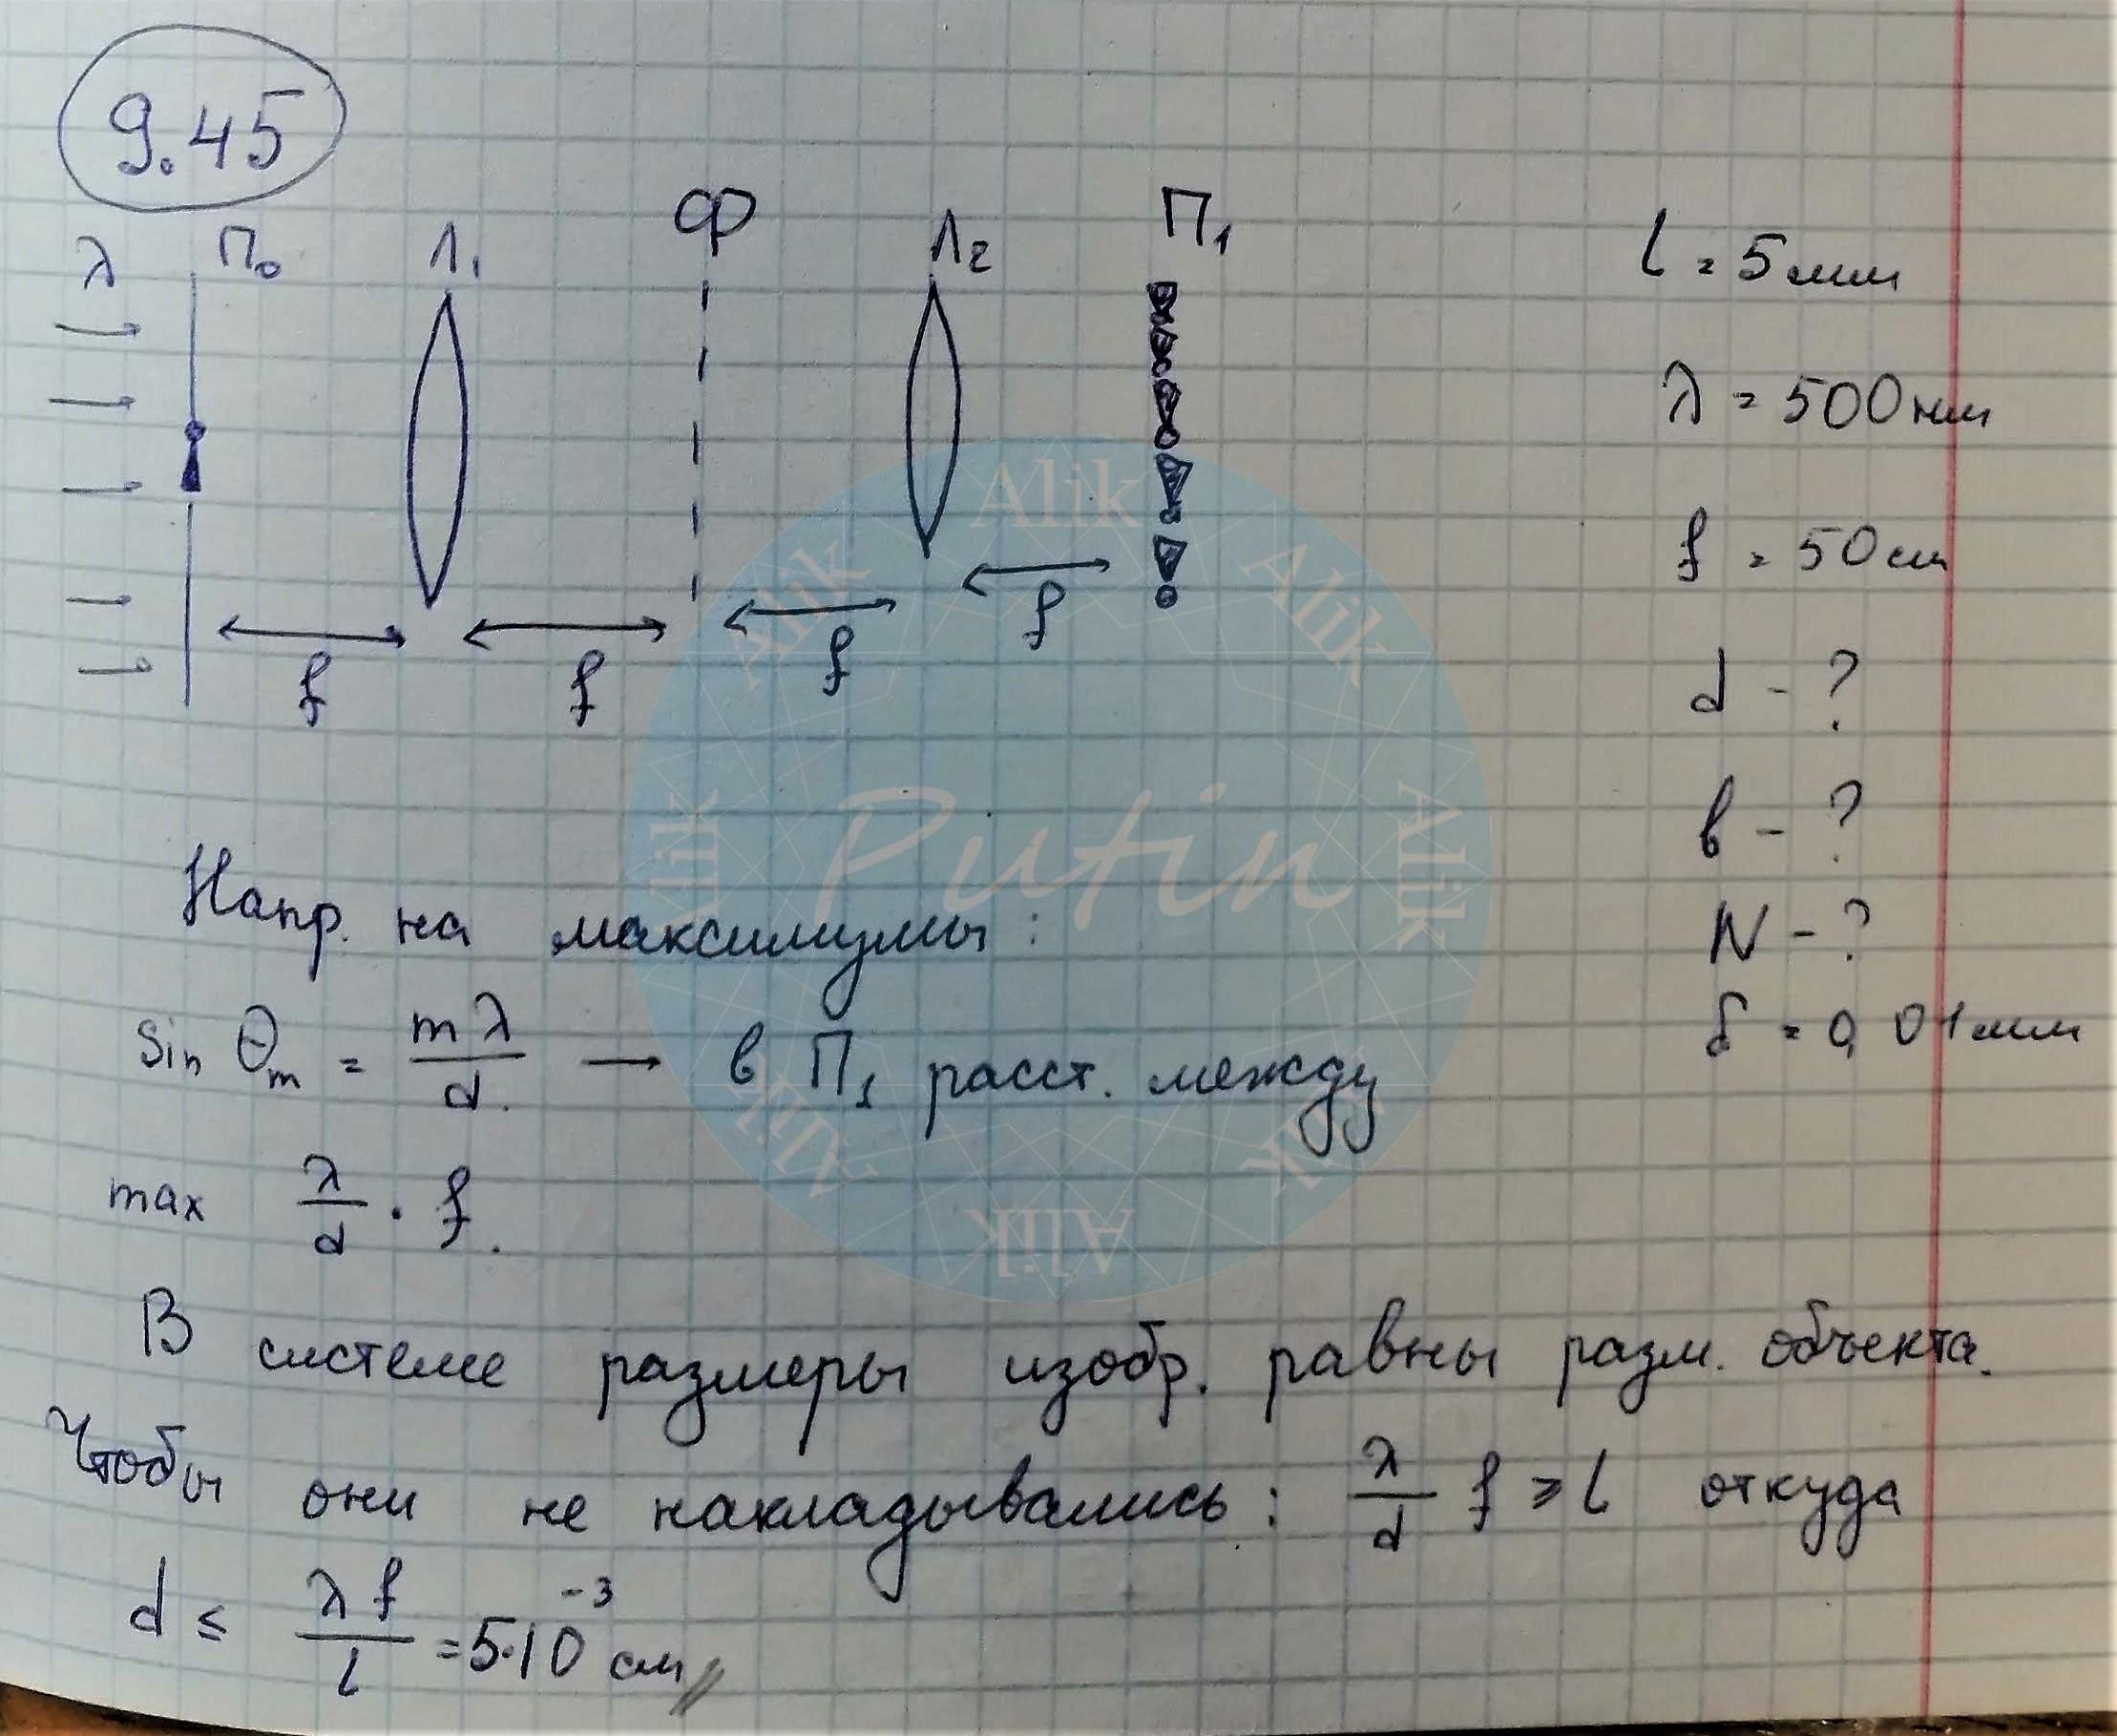 9.45
λ П₀ Л₁ Ф Л₂ П₁
f f f f
l = 5 мм
λ = 500 нм
f = 50 см
d - ?
b - ?
N - ?
δ = 0,01 мм
Напр. на максимумы:
Sin θₘ = mλ/d. → в П₁ расст. между
max λ/d · f.
В системе размеры изобр. равны разм. объекта.
Чтобы они не накладывались: λ/d f ≥ l откуда
d ≤ λf/l = 5·10⁻³ см //
Alik Alik Alik Alik Alik Alik Alik Alik
Putin